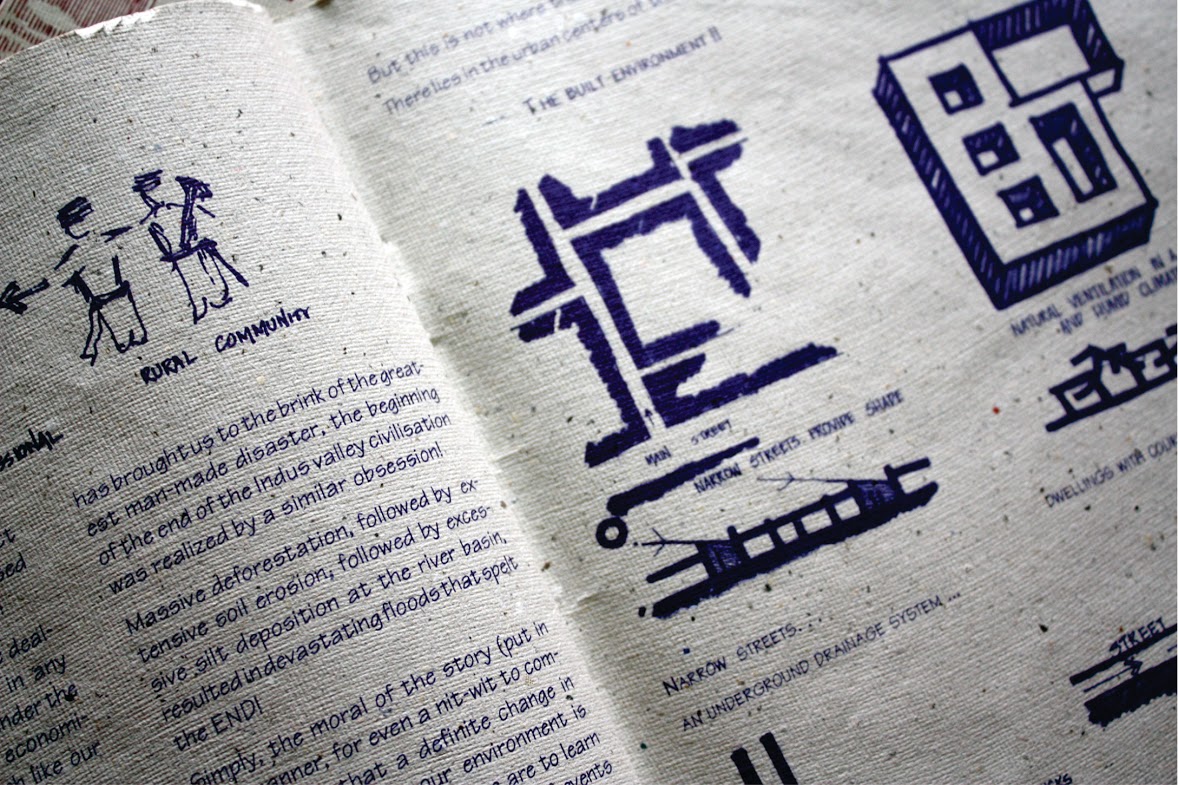 RURAL COMMUNITY
has brought us to the brink of the great-
est man-made disaster, the beginning
of the end of the Indus valley civilisation
was realized by a similar obsession!
Massive deforestation, followed by ex-
tensive soil erosion, followed by exces-
sive silt deposition at the river basin,
resulted in devastating floods that spelt
the END!
Simply, the moral of the story (put in
for even a nit-wit to com-
that a definite change in
our environment is
are to learn
events
deal-
in any
under the
economi-
like our
But this is not where
There lies in the urban centers of
THE BUILT ENVIRONMENT!!
MAIN STREET
NARROW STREETS PROVIDE SHAPE
NARROW STREETS...
AN UNDERGROUND DRAINAGE SYSTEM...
NATURAL VENTILATION IN A
-AND HUMID
DWELLINGS WITH
STREET